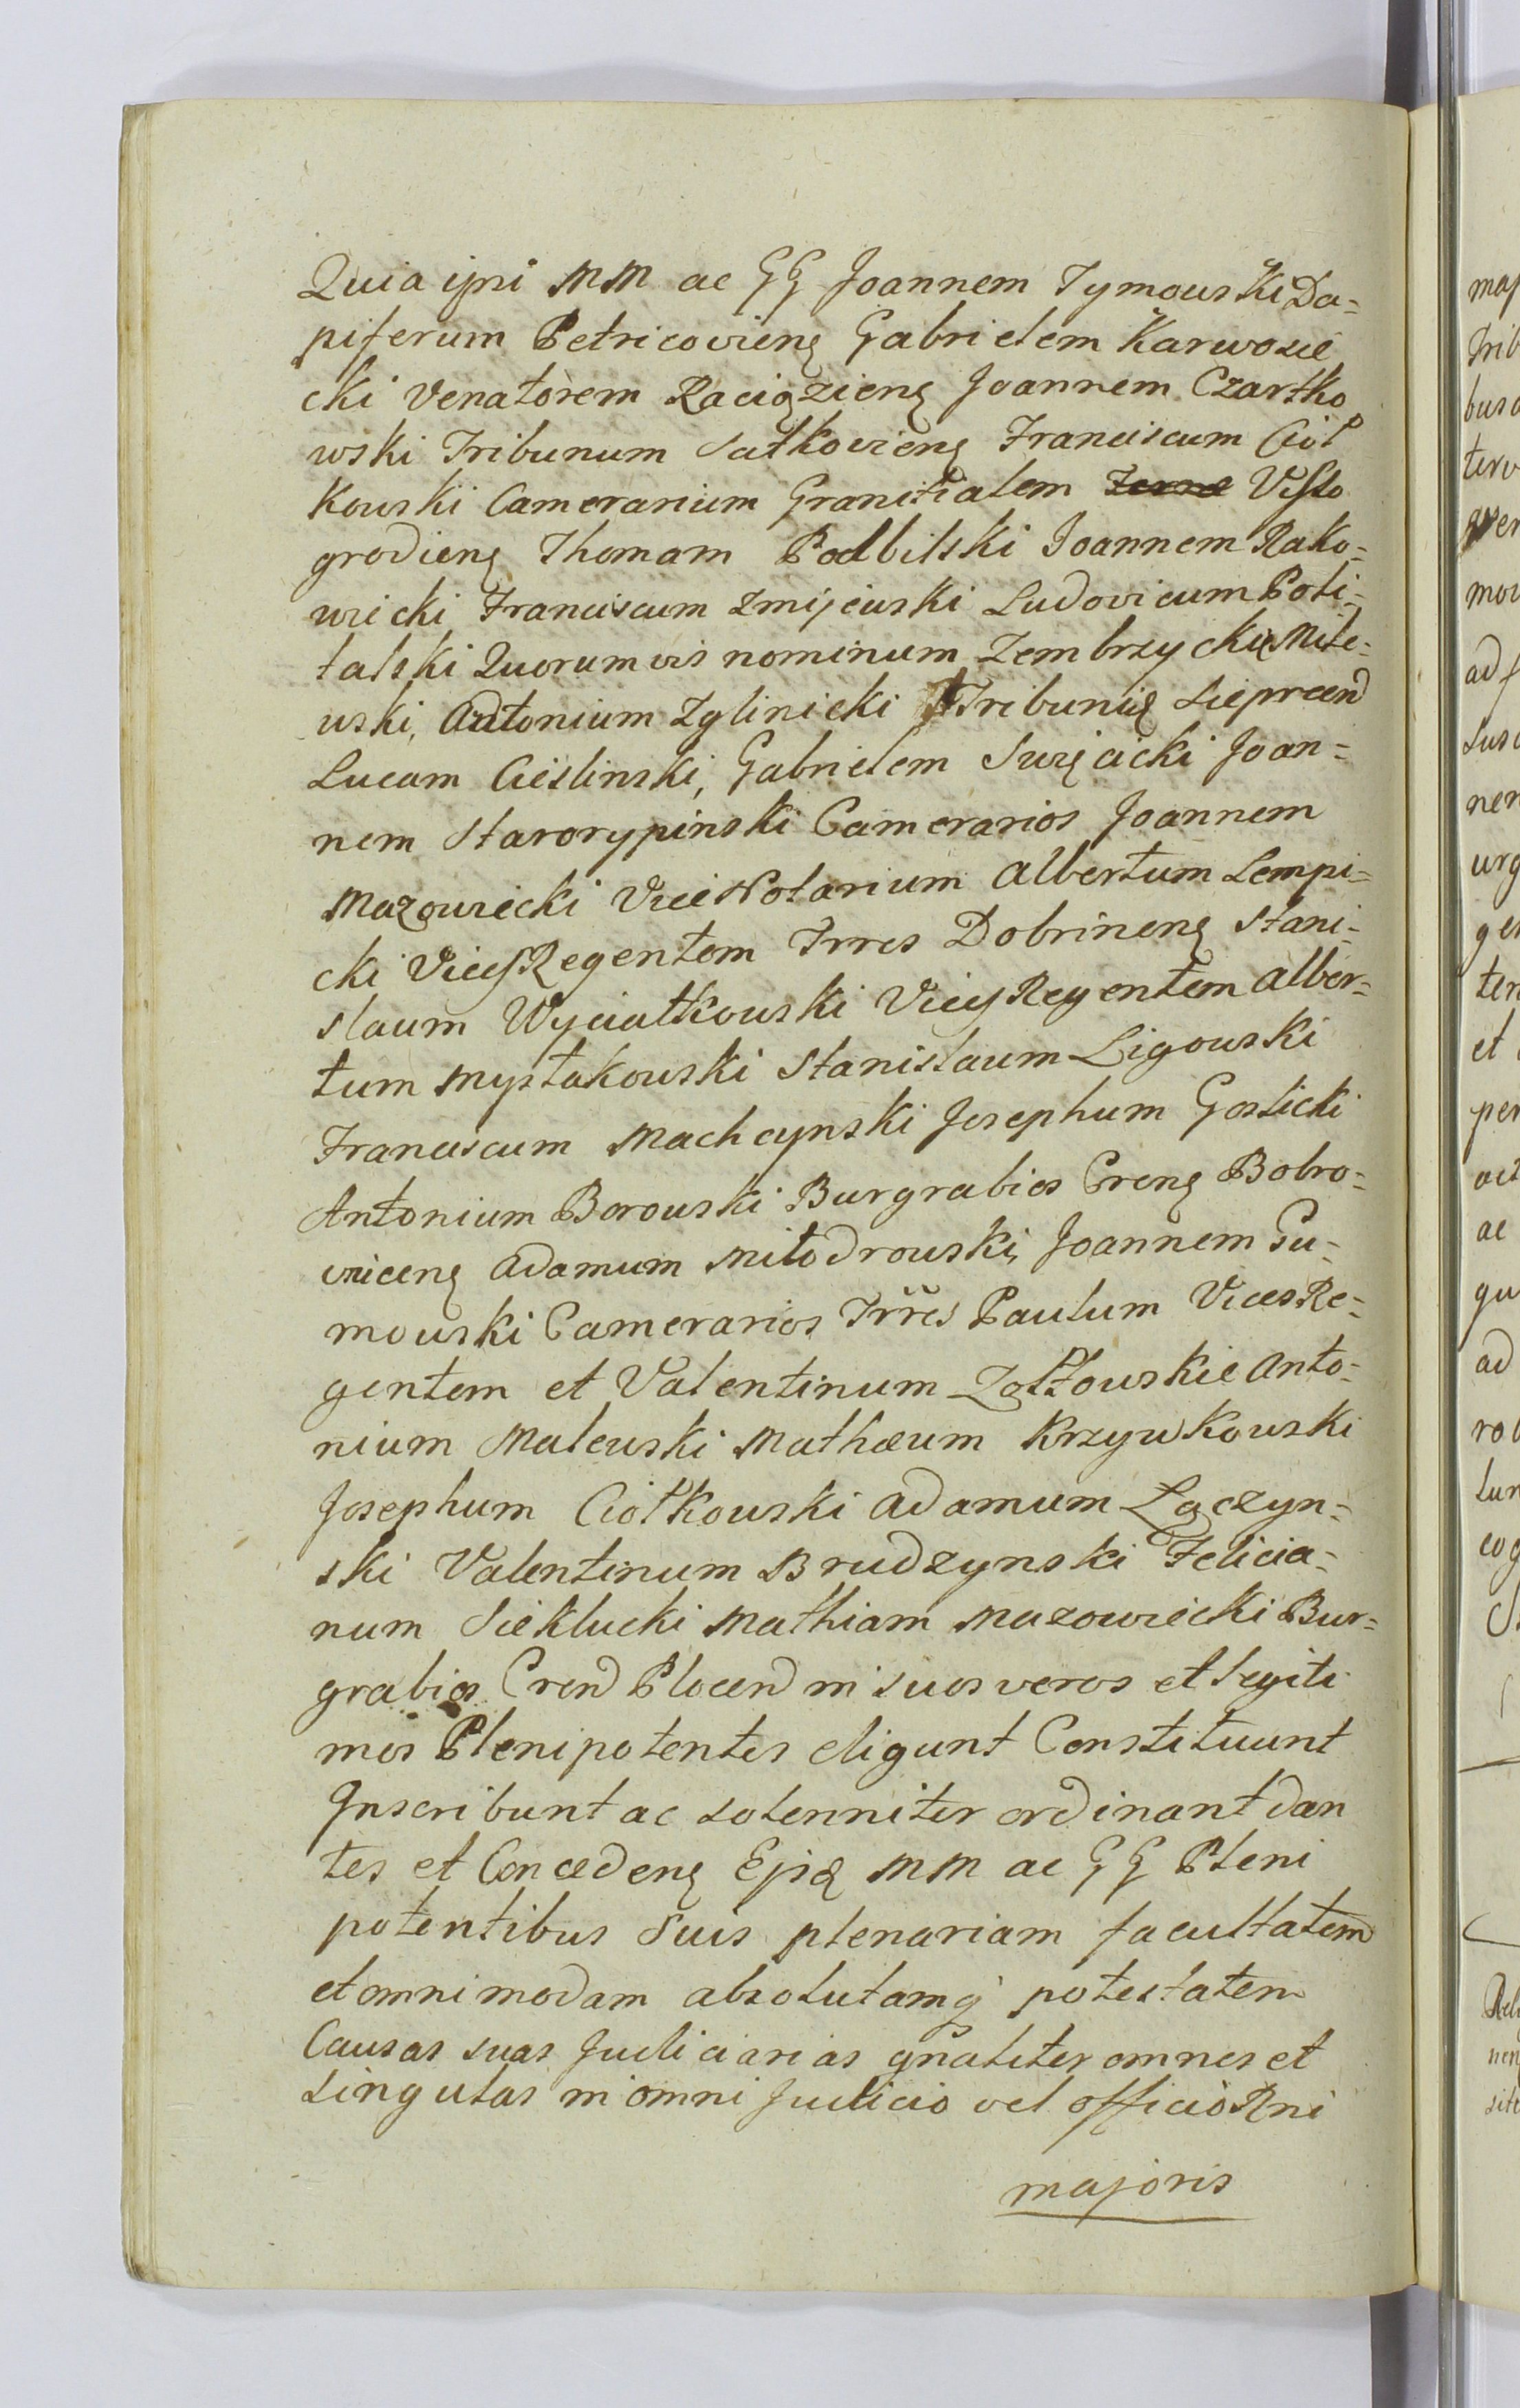 Quia ipsi MM ac GG Joannem Tymowski Da=
piferum Petricovieng Gabrielem Karwosie
cki Venatorem Raciązieng Joannem Czartko
wski Tribunum Tribunum Franciscum Ciół
kowski Camerarium Granitialem Visso
grodieng Thomam Podbilski Joannem Rako=
wiecki Franciscum Zmijewski Ludovicum Poti=
talski Quorumvis nominum Zembrzyckie Mile=
wski, Antonium Zglinicki Tribunię Siepreend
Lucam Cieslinski, Gabrielem Swięcicki Joan=
nem Starorypinski Camerarios Joannem
Mazowiecki ViceNotarium Albertum Lempi=
cki VicesRegentem Trres Dobrineng Stani=
slaum Wyciatkowski VicesRegentem Alber=
tum Mystakowski Stanislaum Ligowski
Franciscum Machcynski Josephum Goslicki
Antonium Borowski Burgrabios Creng Bobro=
wniceng Adamum Milodrowski, Joannem Gu=
mowski Camerarios Trres Paulum VicesRe=
gentem et Valentinum Zołtowskie Anto=
nium Malewski Mathæum Krzywkowski
Josephum Ciołkowski Adamum Łączyn=
ski Valentinum Brudzynski Felicia=
num Sieklucki Mathiam Mazowiecki Bur=
grabios Crend Plocend in suos veros et legiti
mos Plenipotentes eligunt Constituunt
Inscribunt ac solenniter ordinant dan
tes et Concedeng Ejsd MM ac GG Pleni
potentibus Suis plenariam facultatem
et omnimodam absolutamq potestatem
Causas suas Judiciarias gñaliter omnes et
singulas in omni Judicio vel officio Rni
majoris